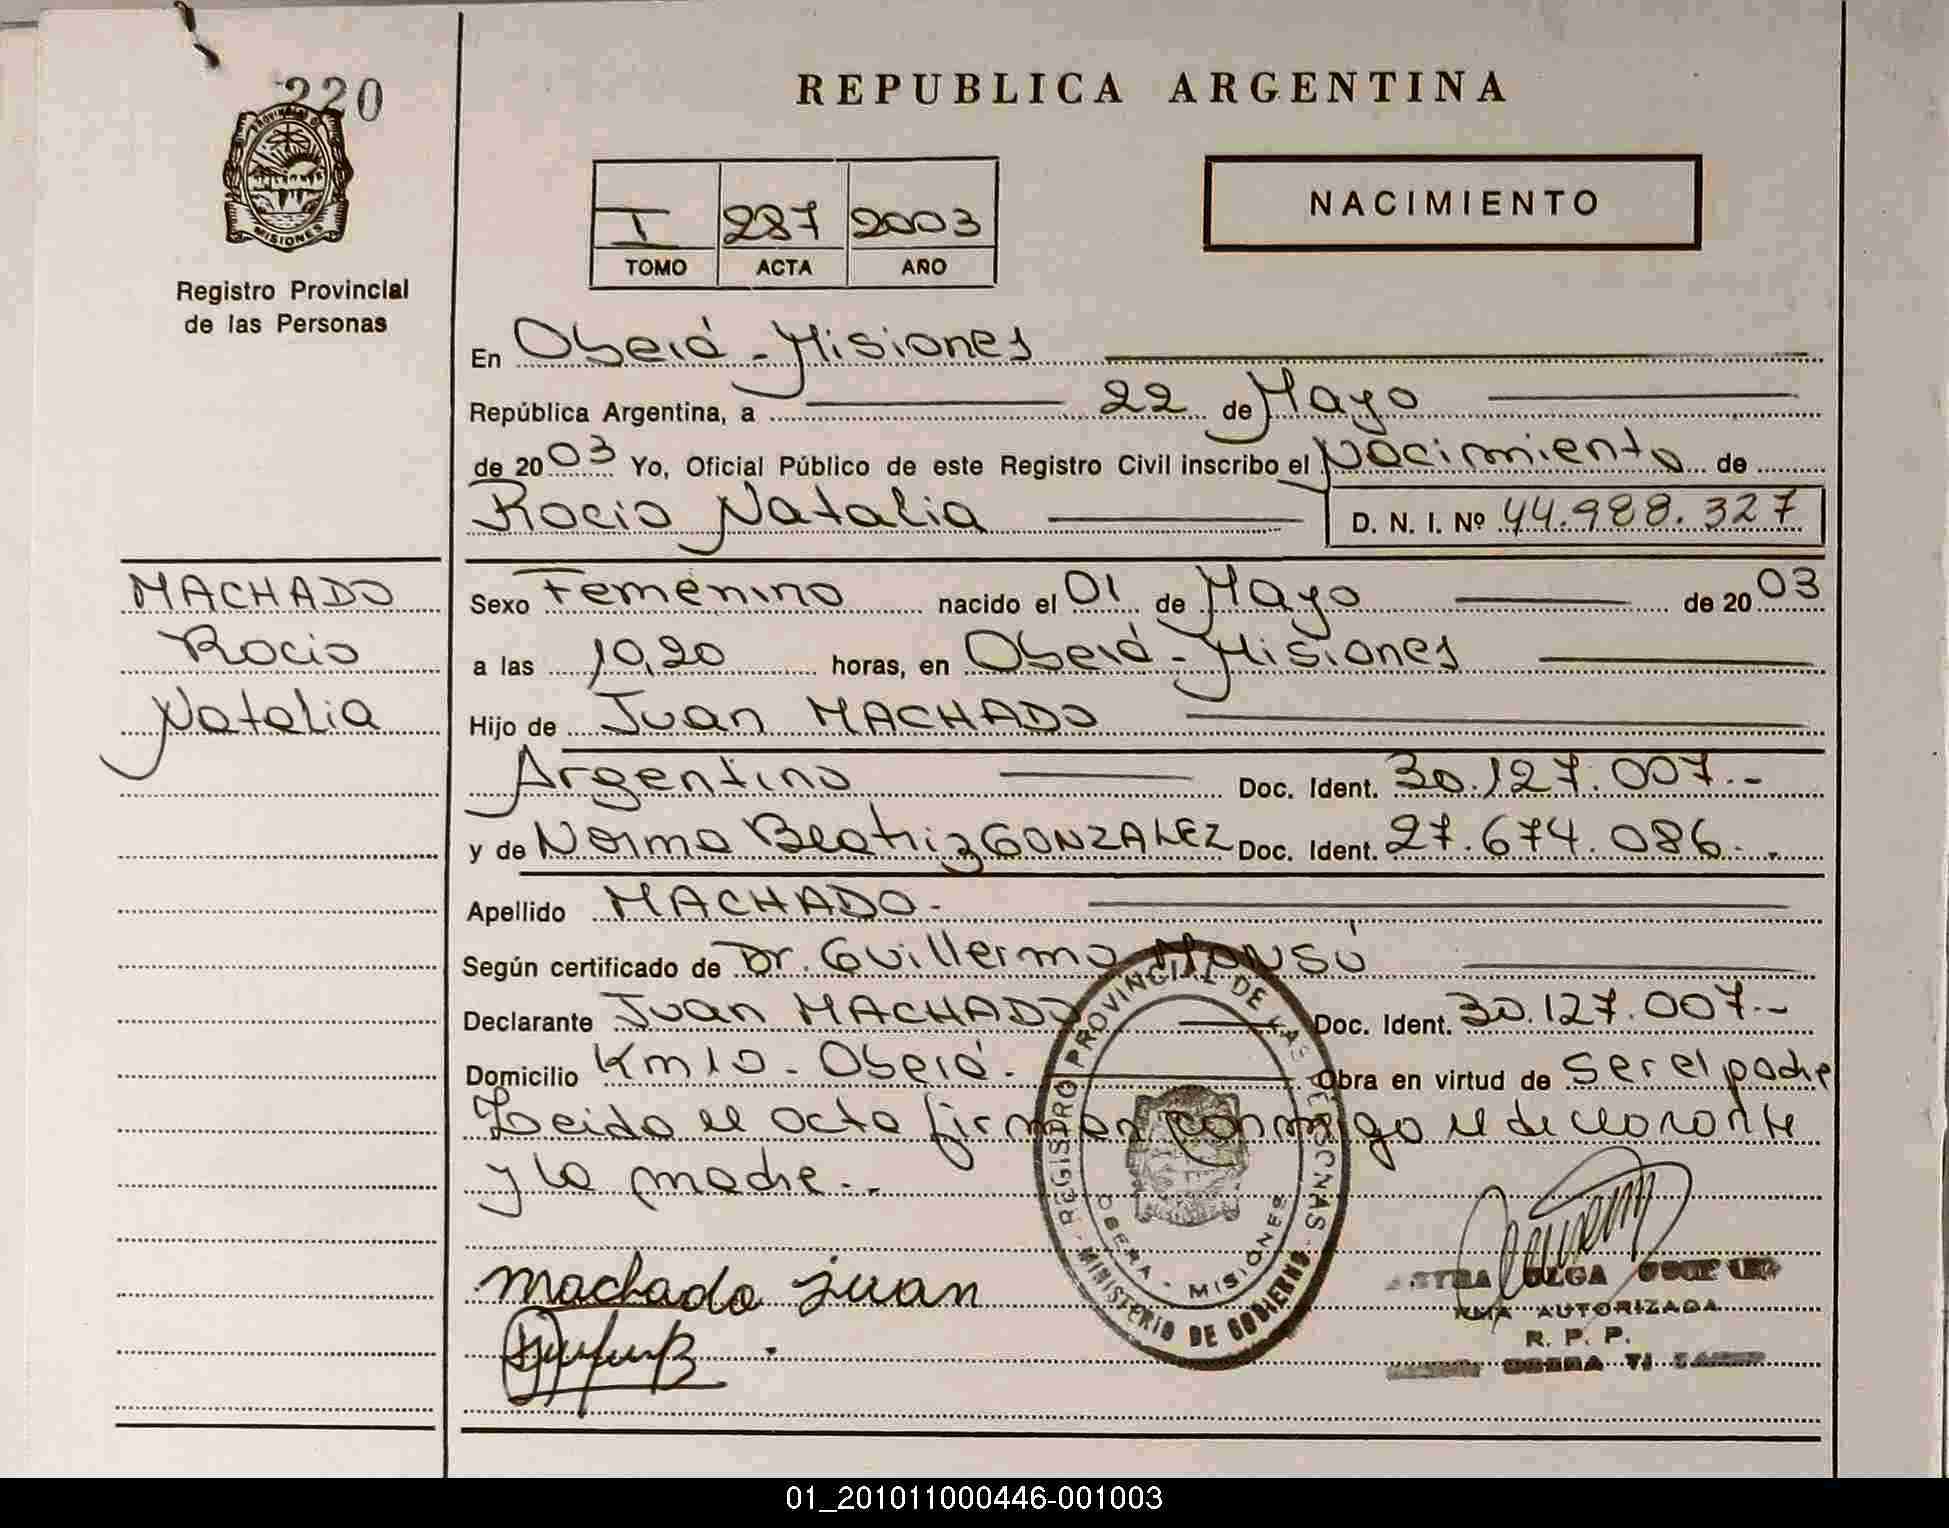 220
PROVINCIA D
MISIONES
Registro Provincial
de las Personas
REPUBLICA ARGENTINA
I 287 2003
TOMO ACTA AÑO
NACIMIENTO
En Oberá - Misiones
República Argentina, a 22 de Mayo
de 2003 Yo, Oficial Público de este Registro Civil inscribo el Nacimiento de
Rocio Natalia D. N. I. Nº 44.988.327
MACHADO
Rocio
Natalia
Sexo Femenino nacido el 01 de Mayo de 2003
a las 10,20 horas, en Oberá - Misiones
Hijo de Juan MACHADO
Argentino Doc. Ident. 30.127.007.-
y de Norma Beatriz GONZALEZ Doc. Ident. 27.674.086.-
Apellido MACHADO-
Según certificado de Dr. Guillermo MONSÚ
Declarante Juan MACHADO Doc. Ident. 30.127.007.-
Domicilio Km 10 - Oberá. Obra en virtud de ser el padre
Leida el acta firman conmigo el declarante
y la madre..
REGISTRO PROVINCIAL DE LAS PERSONAS
MINISTERIO DE GOBIERNO
OBERA - MISIONES
machado juan
OLGA
AUTORIZADA
R. P. P.
OBERA
01_201011000446-001003